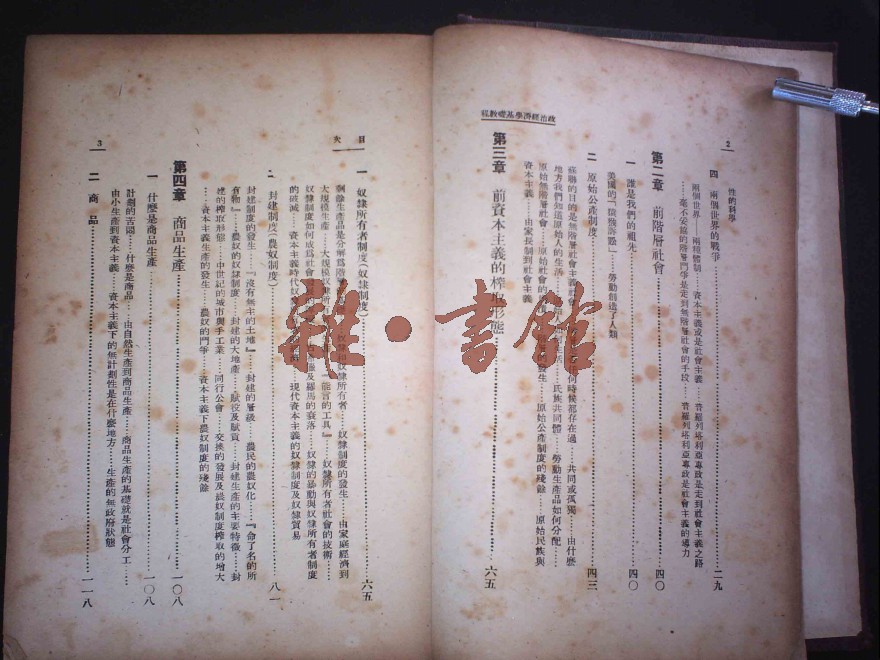 政治經濟學基礎教程
2
性的科學
四 兩個世界的戰爭……二九
兩個世界——兩種體制……資本主義或是社會主義……普羅列塔利亞專政是走到社會主義之路
……毫不妥協的階層鬥爭是走到無階層社會的手段……普羅列塔利亞專政是社會主義的導力
第二章 前階層社會……四〇
一 誰是我們的祖先……四〇
美國的『猿猴訴訟』……勞動創造了人類
二 原始公產制度……四三
蘇聯的目的是無階層社會主義社會 何時候都存在過……共同或孤獨……由什麼
地方我們知道原始人的生活 民族共同體……勞動生產品如何分配……
原始無階層社會……原始社會的 發生……原始公產制度的殘餘……原始民族與
資本主義……由家長制到社會主義
第三章 前資本主義的榨取形態……六五
目次
3
一 奴隸所有者制度(奴隸制度)……六五
剩餘生產品是分解爲階 奴隸和奴隸所有者……奴隸制度的發生……由家庭經濟到
大規模生產……大規模奴隸所 『能言的工具』……奴隸所有者社會的技術……
奴隸制度如何成爲社會 及羅馬的衰落……奴隸的暴動與奴隸所有者制度
的破滅……資本主義時代奴 現代資本主義的奴隸制度及奴隸貿易
二 封建制度(農奴制度)……八一
封建制度的發生……『沒有無主的土地』……封建的層級……農民的農奴化……『命了名的所
有物』……農奴的奴隸制度……封建的大地產……賦役及賦貢……封建生產的主要特徵……封
建的榨取形態……中世紀的城市與手工業……同行公會……交換的發展及農奴制度榨取的增大
……資本主義生產的發生……農奴的鬥爭……資本主義下農奴制度的殘餘
第四章 商品生產……一〇八
一 什麼是商品生產……一〇八
計劃的苦悶……什麼是商品……由自然生產到商品生產……商品生產的基礎就是社會分工……
由小生產到資本主義……資本主義下的無計劃性是在什麼地方……生產的無政府狀態
二 商品……一一八
雜·書館